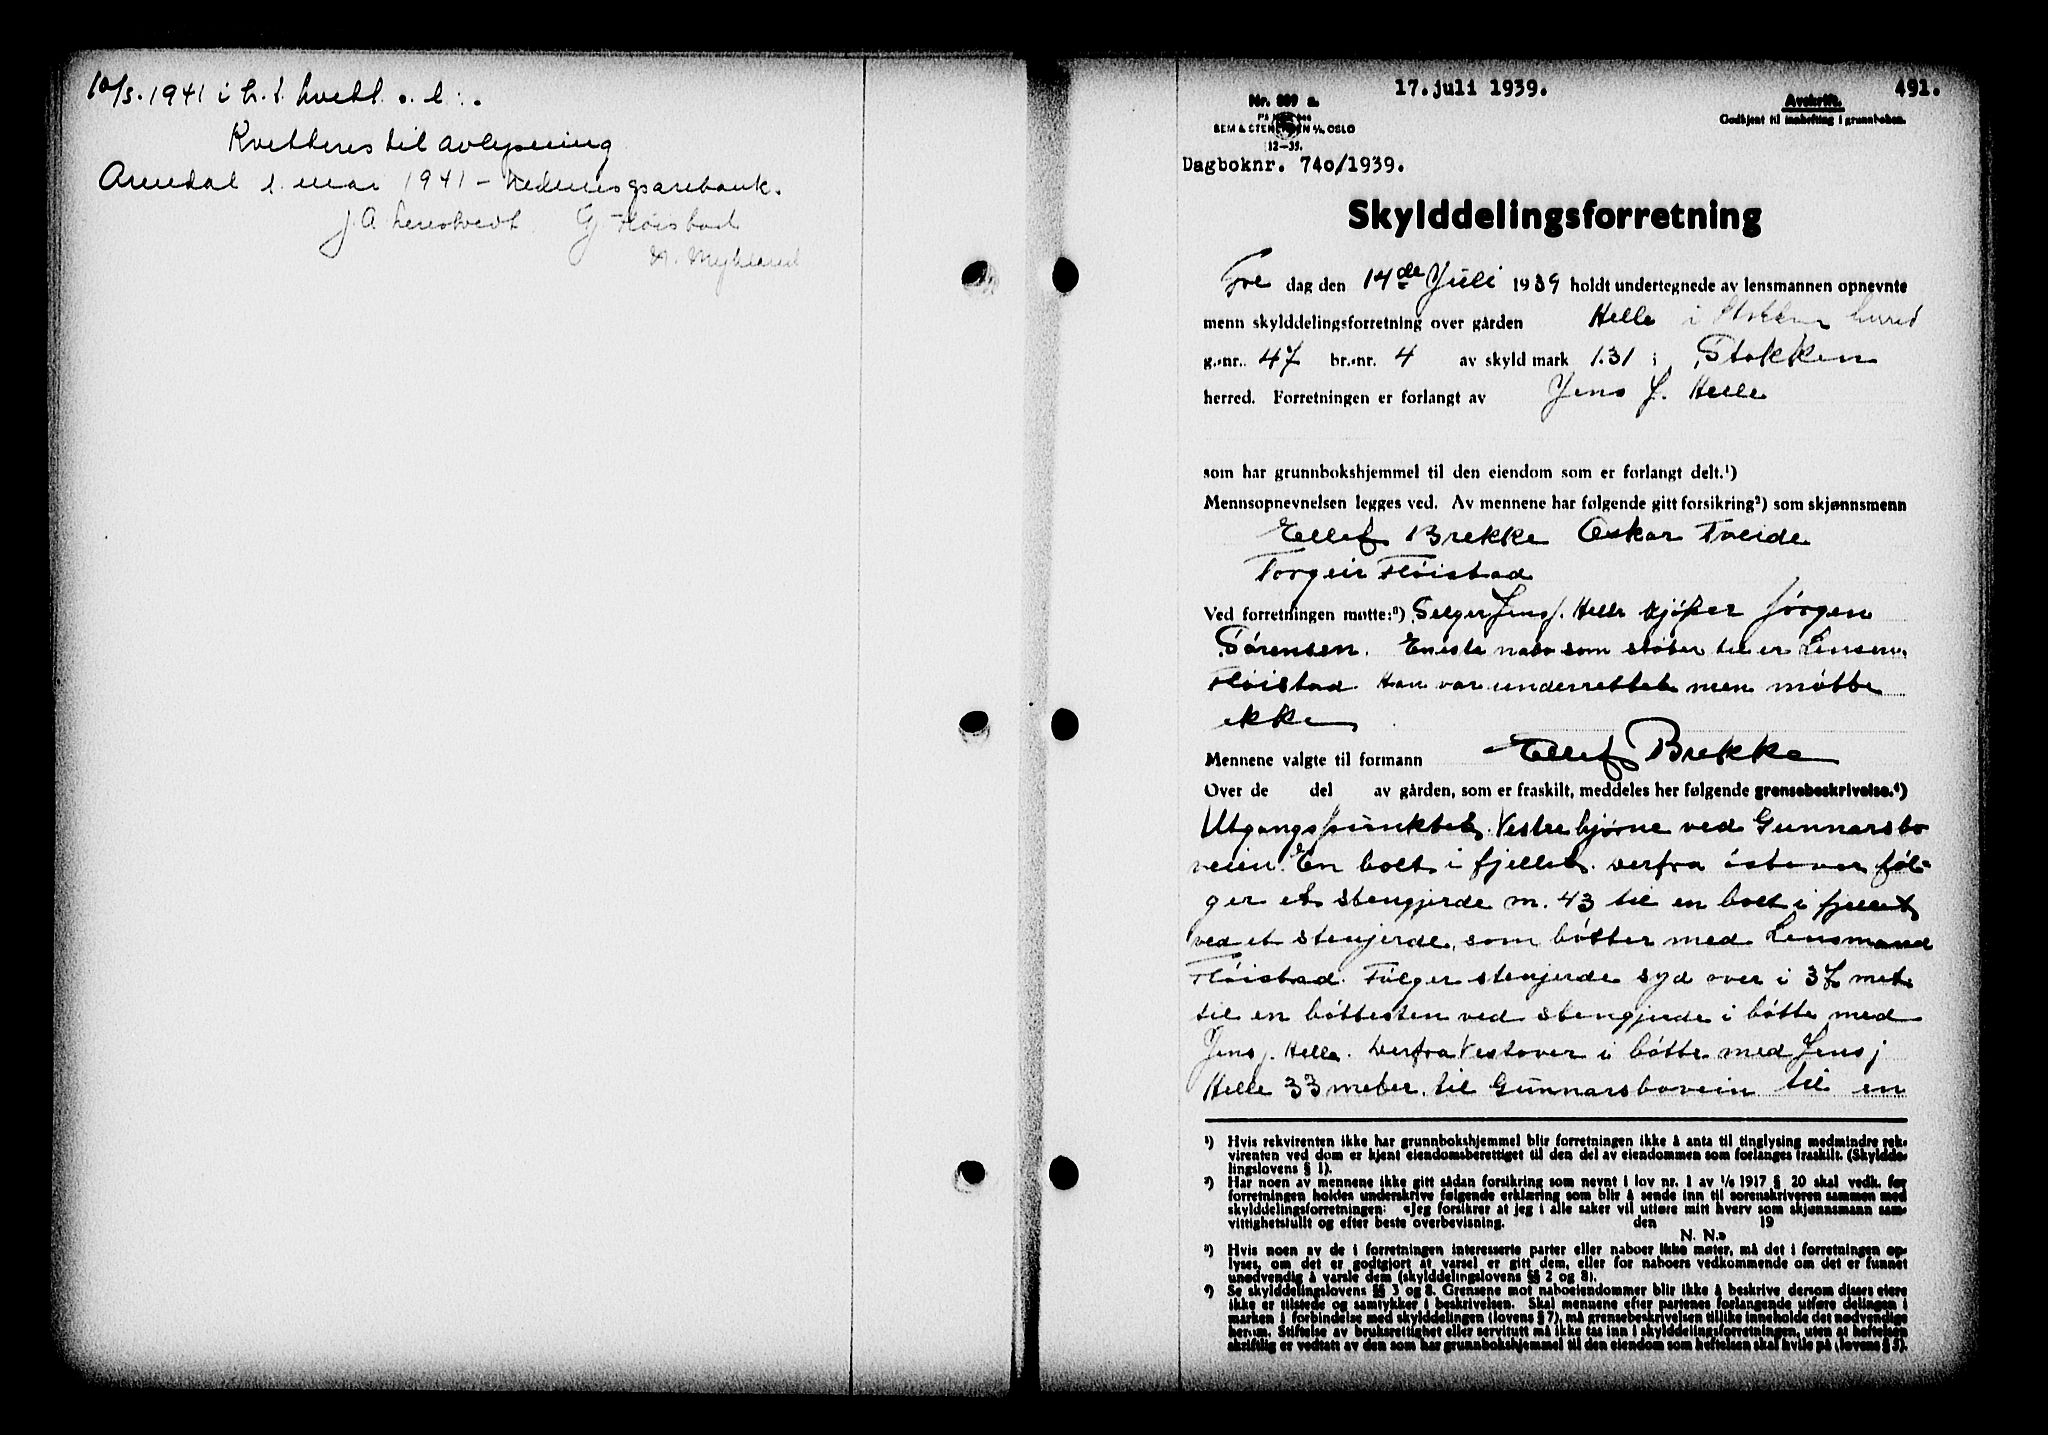 10/5. 1941 i h. t. kvitt. o. l :.
Kvitteres til avlysning
Arendal 1. mai 1941 – Nedenes
J. A.    G. Fløistad
N. Mykland
17. juli 1939.
491.
Nr. 899 a.
Avskrift.
Godkjent til innhefting i grunnboken.
SEM & STENERSEN A/S, OSLO
12—35.
Dagboknr. 740/1939.
Skylddelingsforretning
Fre dag den 14de Juli 1939 holdt undertegnede av lensmannen opnevnte
menn skylddelingsforretning over gården Helle i Stokken herred
g.-nr. 47 br.-nr. 4 av skyld mark 1.31 i Stokken
herred. Forretningen er forlangt av Jens J. Helle
som har grunnbokshjemmel til den eiendom som er forlangt delt.¹)
Mennsopnevnelsen legges ved. Av mennene har følgende gitt forsikring²) som skjønnsmenn
Ellef Brekke Oskar Tveide
Torgeir Fløistad
Ved forretningen møtte:³) Selger Jens J. Helle kjøper Jørgen
Sørensen. Eneste nabo som støter til er Lensm.
Fløistad Han var underrettet men møtte
ikke
Mennene valgte til formann Ellef Brekke
Over de del av gården, som er fraskilt, meddeles her følgende grensebeskrivelse.⁴)
Utgangspunktet Vestre hjørne ved Gunnarsbo
veien. En bolt i fjellet. Derfra østover føl-
ger et stengjerde m. 43 til en bolt i fjellet
ved et stenjerde, som bøtter med Lensmand
Fløistad. Følger stenjerde syd over i 37 met.
til en bøttesten ved stengjerde i bøtte med
Jens J. Helle. Derfra Vestover i bøtte med Jens J
Helle 33 meter til Gunnarsbovein til en
¹) Hvis rekvirenten ikke har grunnbokshjemmel blir forretningen ikke å anta til tinglysing medmindre rek-
virenten ved dom er kjent eiendomsberettiget til den del av eiendommen som forlanges fraskilt. (Skyldde-
lingslovens § 1).
²) Har noen av mennene ikke gitt sådan forsikring som nevnt i lov nr. 1 av 1/6 1917 § 20 skal vedk. før
forretningen holdes underskrive følgende erklæring som blir å sende inn til sorenskriveren sammen med
skylddelingsforretningen: «Jeg forsikrer at jeg i alle saker vil utføre mitt hverv som skjønnsmann sam-
vittighetsfullt og efter beste overbevisning. den 19
N. N.»
³) Hvis noen av de i forretningen interesserte parter eller naboer ikke møter, må det i forretningen op-
lyses, om det er godtgjort at varsel er gitt dem, eller for naboers vedkommende om det er funnet
unødvendig å varsle dem (skylddelingslovens §§ 2 og 8).
⁴) Se skylddelingslovens §§ 3 og 8. Grensene mot naboeiendommer blir ikke å beskrive dersom disses eiere
ikke er tilstede og samtykker i beskrivelsen. Skal mennene efter partenes forlangende utføre delingen i
marken i forbindelse med skylddelingen (lovens § 7), må grensebeskrivelsen tillike inneholde det nødvendige
herum. Stiftelse av bruksrettighet eller servitutt må ikke tas inn i skylddelingsforretningen, uten at heftelsen
skriftlig er vedtatt av den som har grunnbokshjemmel til den eiendom som heftelsen skal hvile på (lovens § 5).